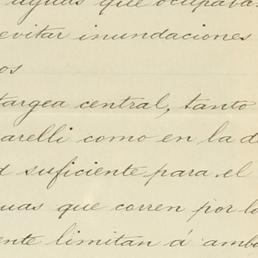 aguas que ocupaba
evitar inundaciones
os
targea central, tanto
arelli como en la d
d suficiente para el
uas que corren por lo
ente limitan á amb